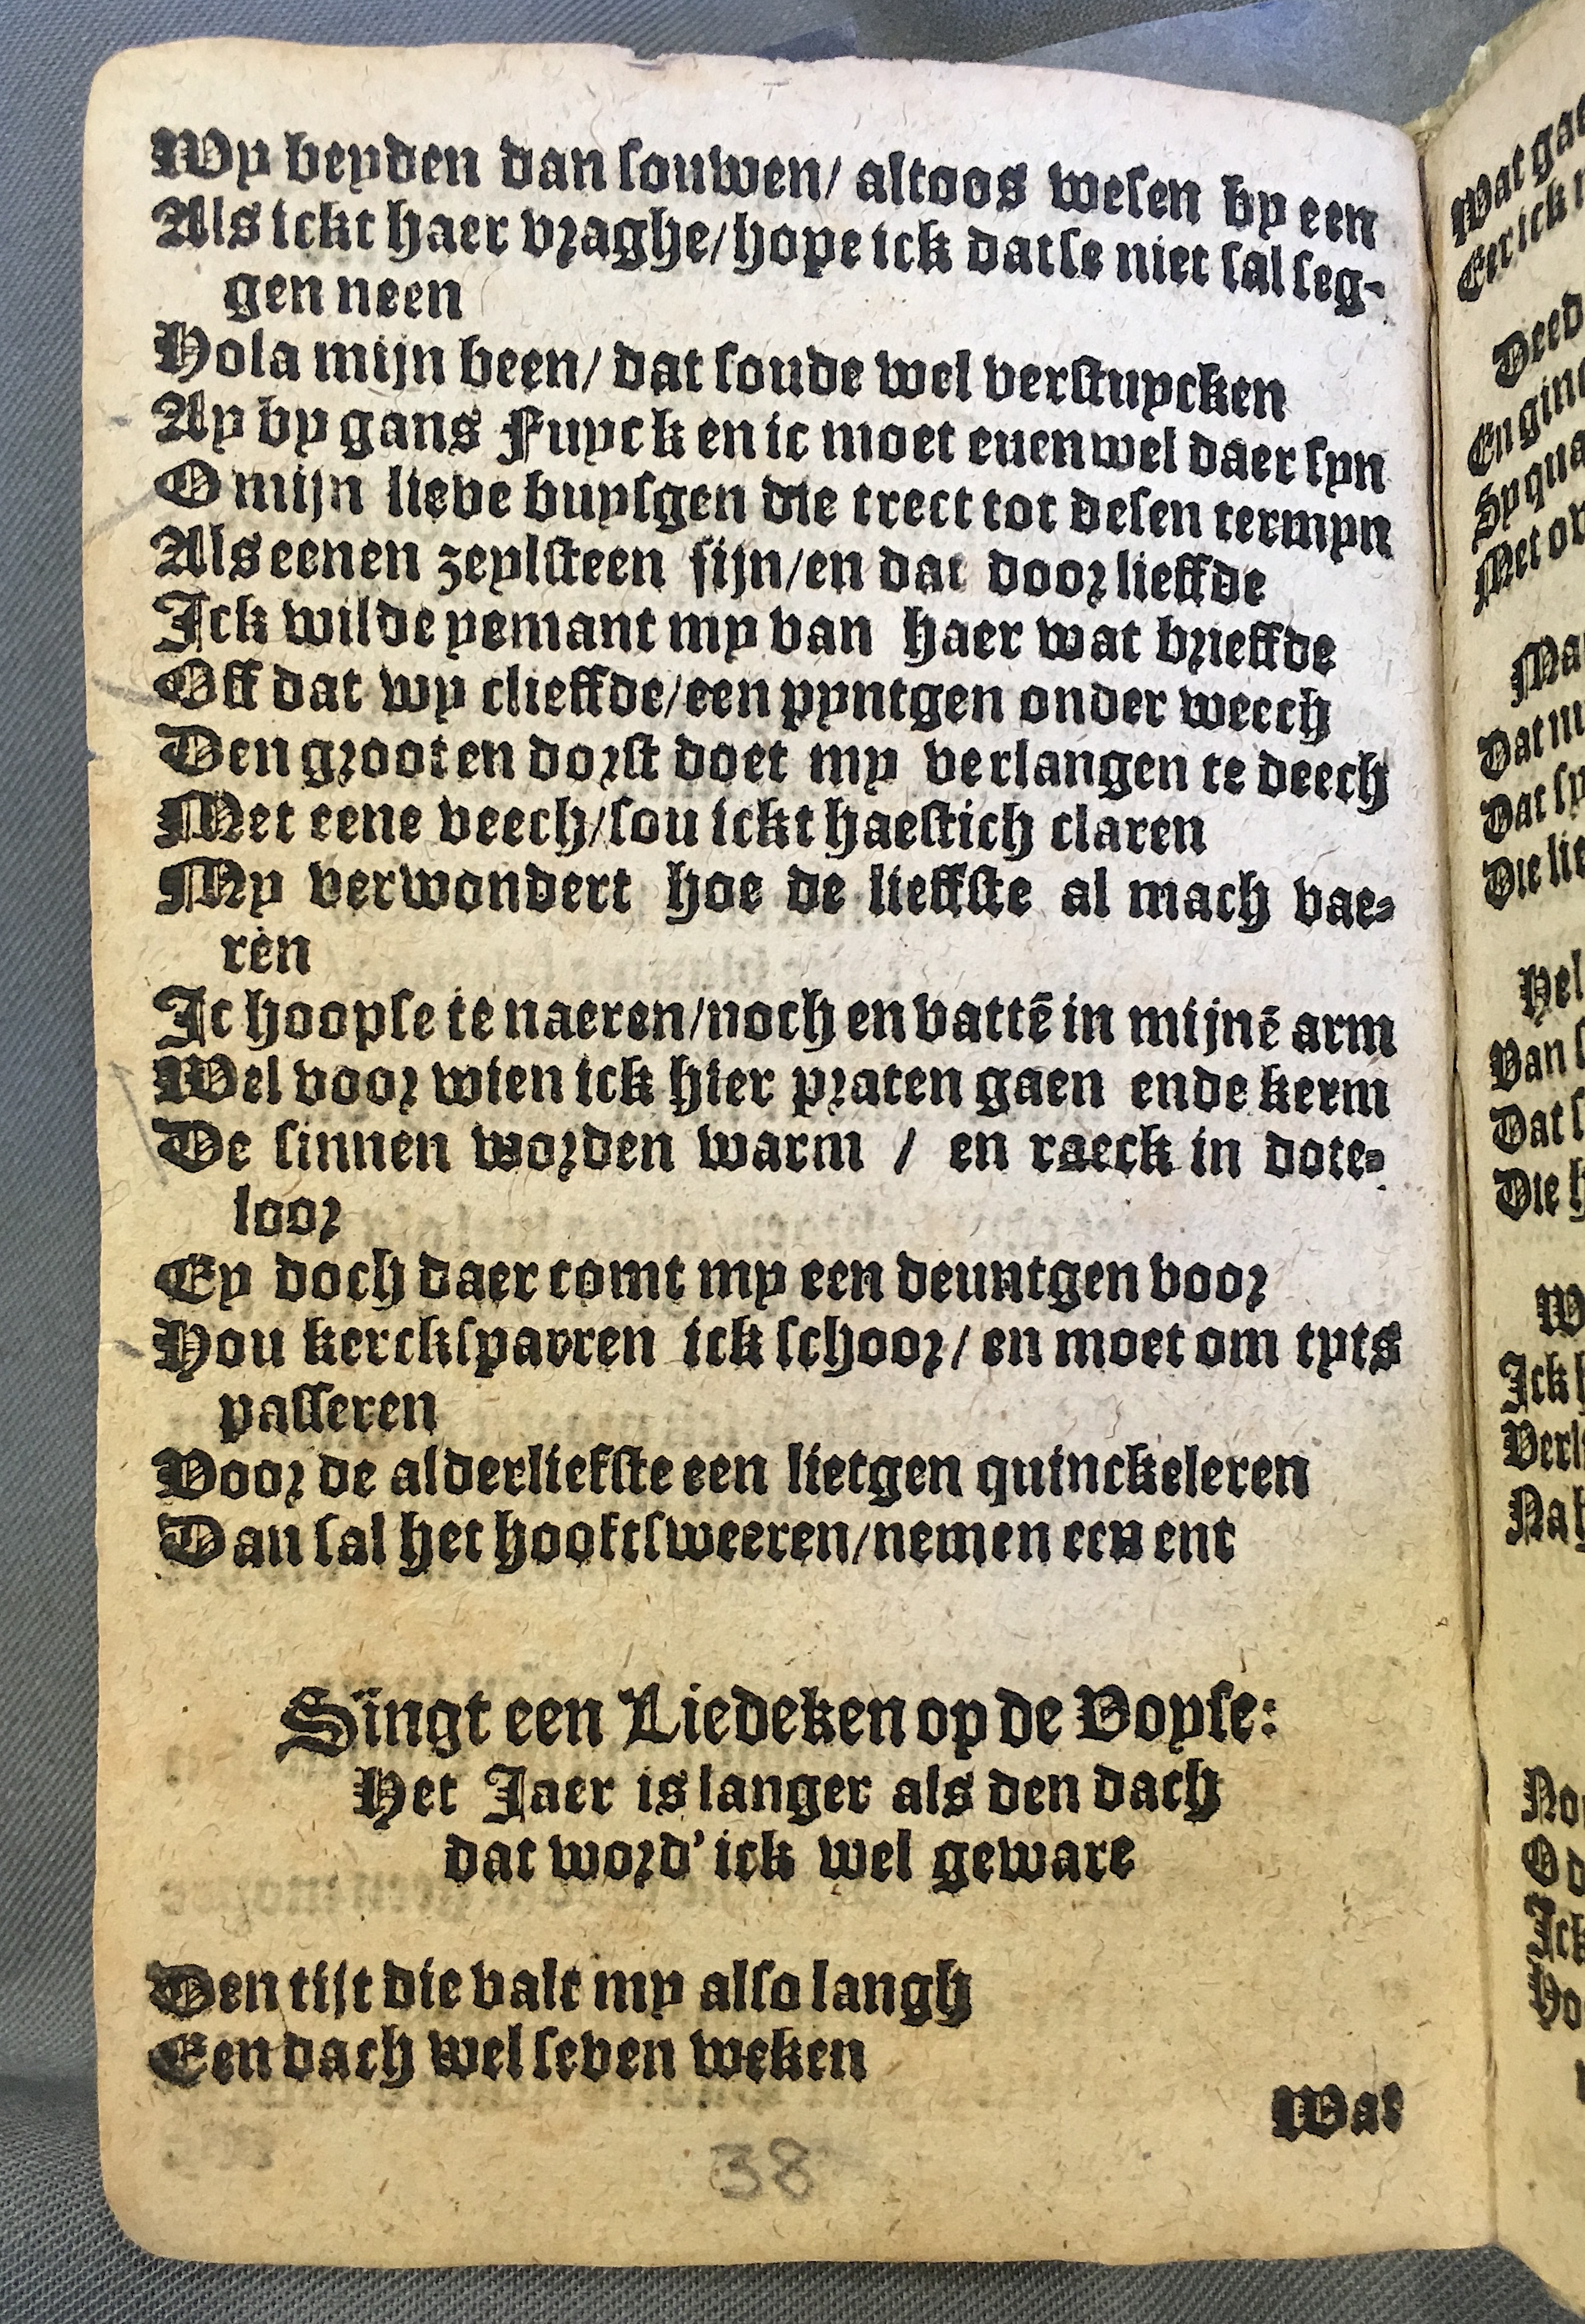 Wy beyden dan souwen/ altoos wesen by een
Als ickt haer vraghe/hope ick datse niet sal seg-
gen neen
Hola mijn been/ dat soude wel verstuycken
Ay by gans Fuycken ic moet euenwel daer syn
O mijn lieve buysgen die trect tot desen termyn
Als eenen zeylsteen sijn/en dat door lieffde
Ick wilde yemant my van haer wat brieffde
Off dat wy clieffde/een pyntgen onder weech
Den grooten dorst doet my verlangen te deech
Met eene veech/sou ickt haestich claren
My verwondert hoe de lieffste al mach vae-
ren
Ic hoopse te naeren/noch en vattē in mijnē arm
Wel voor wien ick hier praten gaen ende kerm
De sinnen worden warm / en raeck in dote-
loor
Ey doch daer comt my een deuntgen voor
Hou kercksparren ick schoor/ en moet om tyts
passeren
Voor de alderliefste een lietgen quinckeleren
Dan sal het hooftsweeren/nemen een ent
Singt een Liedeken op de Voyse:
Het Jaer is langer als den dach
dat word' ick wel geware
Den tijt die valt my also langh
Een dach wel seven weken
Wat
38
Wat
Eer ick
Deed
En
Sy
Met
Dat
Dat
Die
Van
Dat
Die
Ick